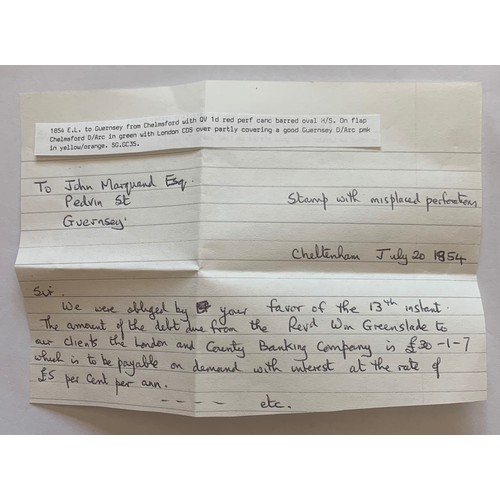 1854 E.L. to Guernsey from Chelmsford with QV 1d red perf canc barred oval H/S. On flap
Chelmsford D/Arc in green with London CDS over partly covering a good Guernsey D/Arc pmk
in yellow/orange. SG.GC35.
To John Marquand Esq.
Pedvin St
Guernsey
Stamp with misplaced perforations
Cheltenham July 20 1854
Sir.
We were obliged by your favor of the 13th instant.
The amount of the debt due from the Rev'd Wm Greenslade to
our clients the London and County Banking Company is £30-1-7
which is to be payable on demand with interest at the rate of
£5 per Cent per ann.
---- etc.